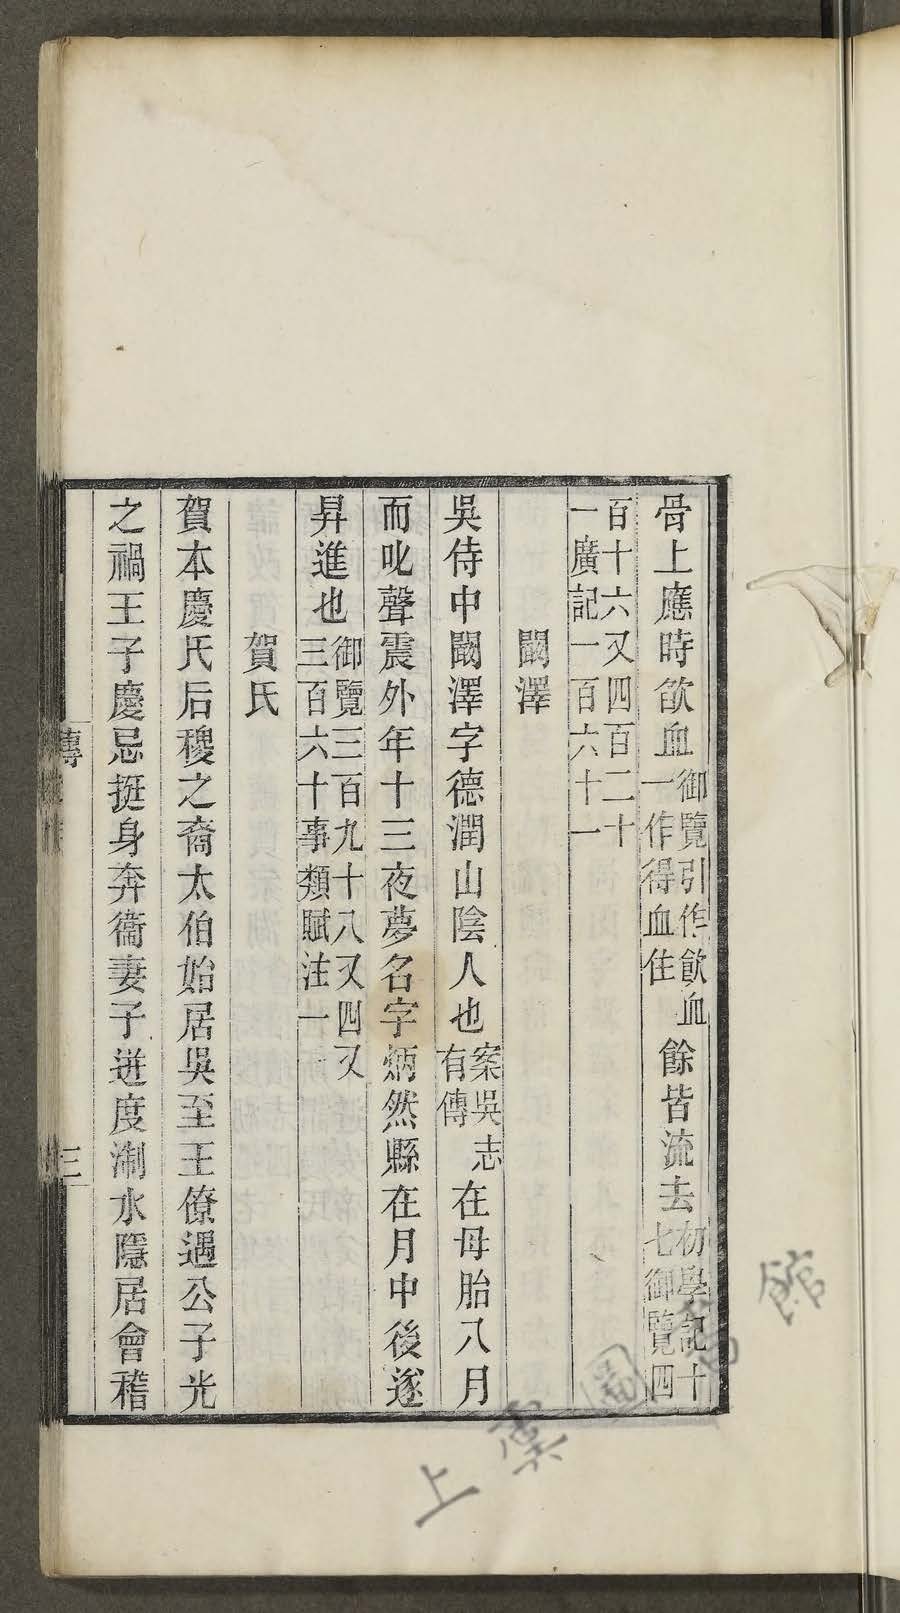 骨上應時飮血御覽引作飮血一作得血住餘皆流去初學記十七御覽四
百十六又四百二十一廣記一百六十一
闞澤
吳侍中闞澤字德潤山陰人也案吳志有傳在母胎八月
而叱聲震外年十三夜夢名字炳然縣在月中後遂
昇進也御覽三百九十八又四又三百六十事類賦注一
賀氏
賀本慶氏后稷之裔太伯始居吳至王僚遇公子光
之禍王子慶忌挺身奔衞妻子迸度淛水隱居會稽
傳
三
上虞圖書館